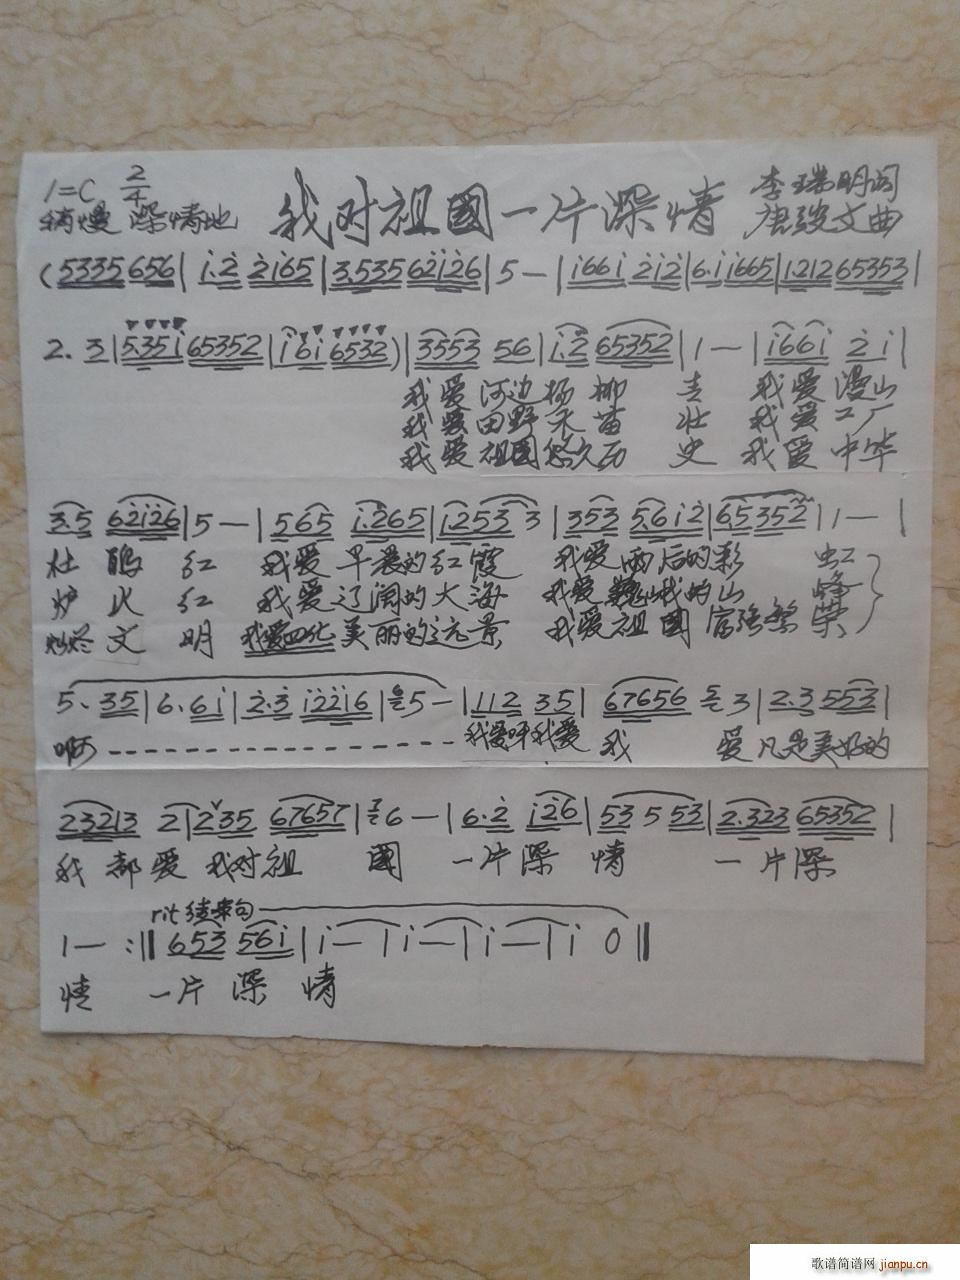 1=C 2/4 我对祖國一片深情 李瑞明词
稍慢 深情地 唐毅文曲
(5335 656 | i.2 2i65 | 3.535 62i26 | 5 — | i66i 2i2 | 6.i i665 | 1.212 65353 |
2. 3 | 5.35i 65352 | i6i 6532) | 3553 56 | i.2 65352 | 1 — | i66i 2 i |
我爱河边杨柳 青 我爱漫山
我爱田野禾苗 壮 我爱工厂
我爱祖国悠久历 史 我爱中华
3.5 62i26 | 5 — | 565 i.265 | i253 3 | 353 5.6i2 | 6.5352 | 1 — |
杜 鹃 红 我爱早晨的红霞 我爱雨后的彩 虹
炉 火 红 我爱辽阔的大海 我爱巍峨的山 峰
灿烂 文 明 我爱四化美丽的远景 我爱祖國富强繁 荣
5. 35 | 6. 6i | 2.3 i22i6 | 6 5 — | 112 35 | 67656 5 3 | 2.3 553 |
啊 我爱呀我爱 我 爱凡是美好的
23213 2 | 2 35 67657 | 7 6 — | 6.2 i26 | 53 5 53 | 2.323 65352 |
我 都爱 我对祖 國 一片深 情 一片深
rit 结束句
1 — :‖ 653 56i | i — | i — | i — | i 0 ‖
情 一片 深 情
歌谱简谱网 jianpu.cn